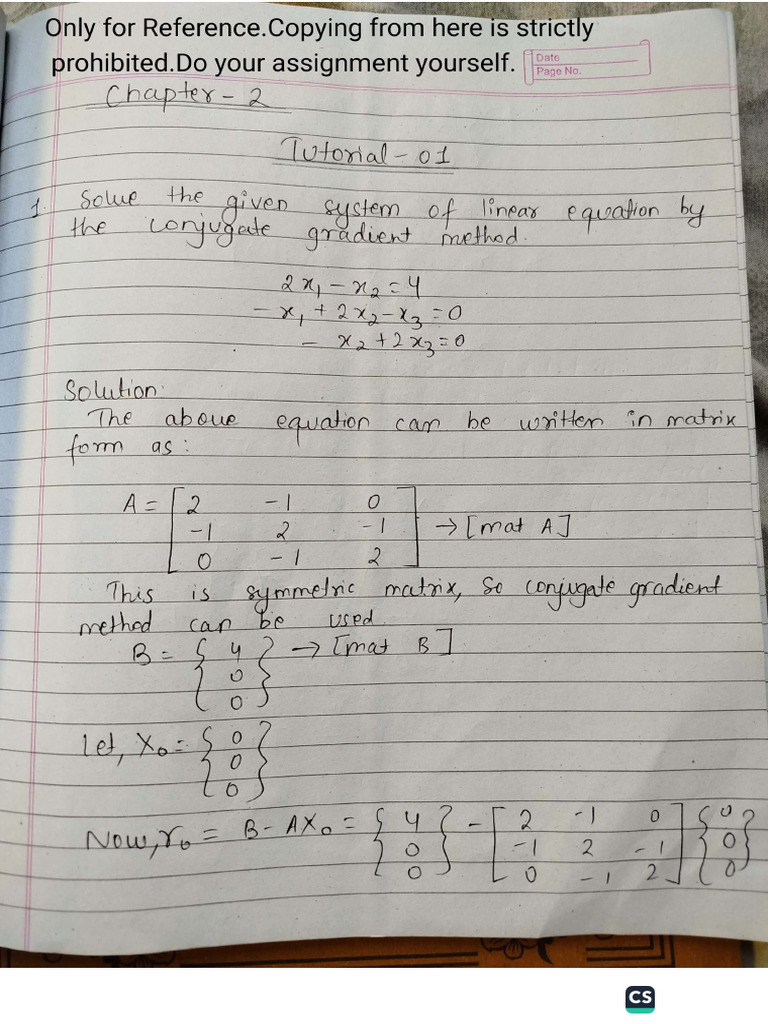 Only for Reference.Copying from here is strictly
prohibited.Do your assignment yourself.
Date
Page No.
Chapter-2
Tutorial-01
1. Solve the given system of linear equation by
the conjugate gradient method.
2x₁ - x₂ = 4
- x₁ + 2x₂ - x₃ = 0
- x₂ + 2x₃ = 0
Solution:
The above equation can be written in matrix
form as:
A = [ 2 -1 0
-1 2 -1 → [mat A]
0 -1 2 ]
This is symmetric matrix, So conjugate gradient
method can be used
B = { 4 } → [mat B]
{ 0 }
{ 0 }
Let, X₀ = { 0 }
{ 0 }
{ 0 }
Now, r₀ = B - AX₀ = { 4 } - [ 2 -1 0 ] { 0 }
{ 0 } [ -1 2 -1 ] { 0 }
{ 0 } [ 0 -1 2 ] { 0 }
CS